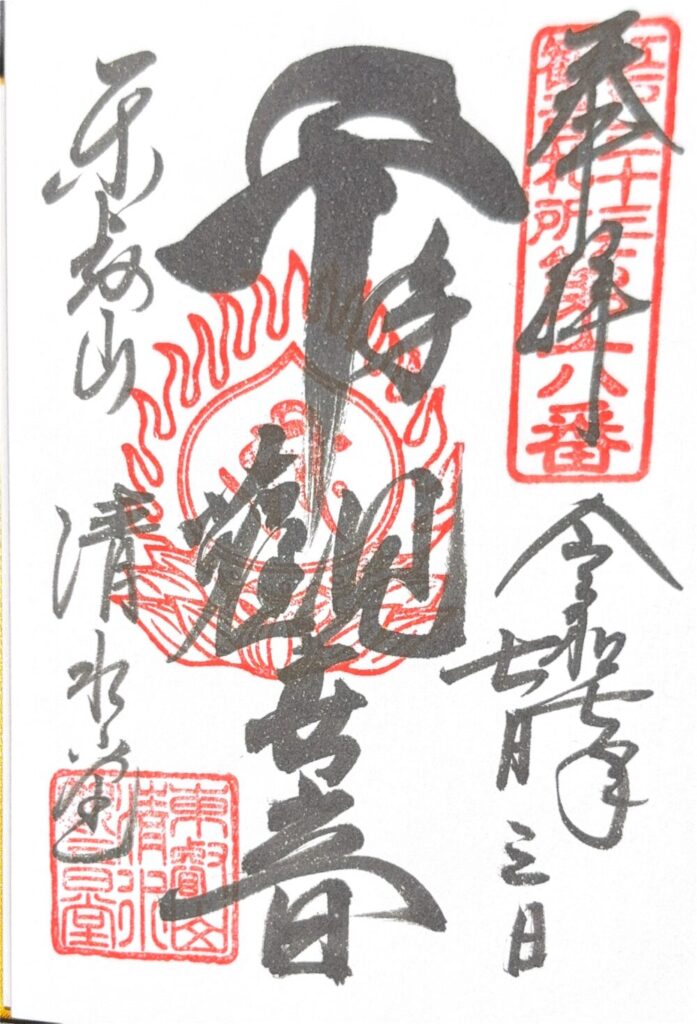 奉拝
江戸三十三
観音札所
第六番
令和七年
七月三日
千手觀世音
東叡山
清水堂
東叡山
清水
観音堂